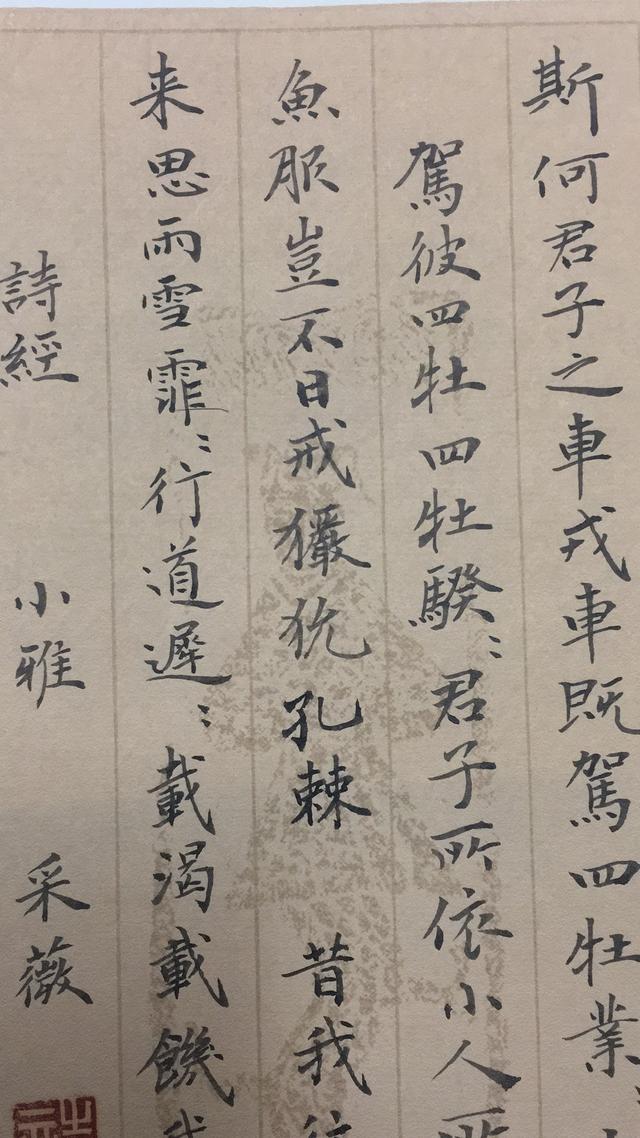 斯何君子之車戎車既駕四牡業〻
駕彼四牡四牡騤〻君子所依小人所
魚服豈不日戒玁狁孔棘 昔我往
来思雨雪霏〻行道遲〻載渴載饑我
詩經 小雅 采薇